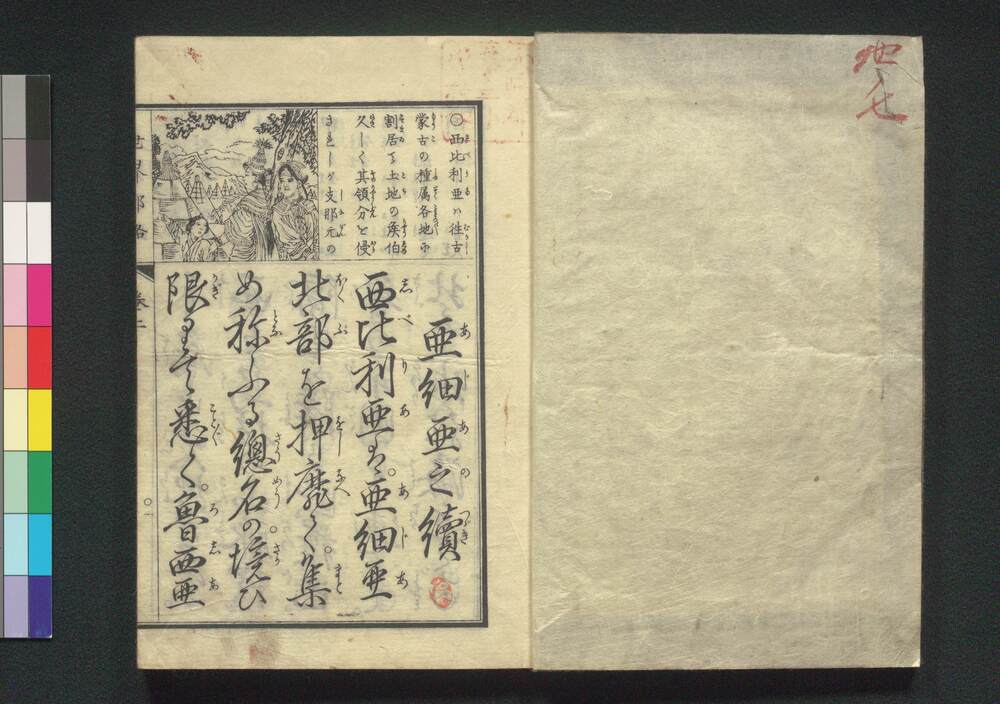 地
七
○西比利亜ハ往古
蒙古の種属各地に
割居て土地の侯伯
久しく其領分を侵
されしが支那元の
亜細亜之續
西比利亜は。亜細亜
北部を押靡く。集
め称ふる總名の。境ひ
限りも悉く。魯西亜
世界都路
巻二